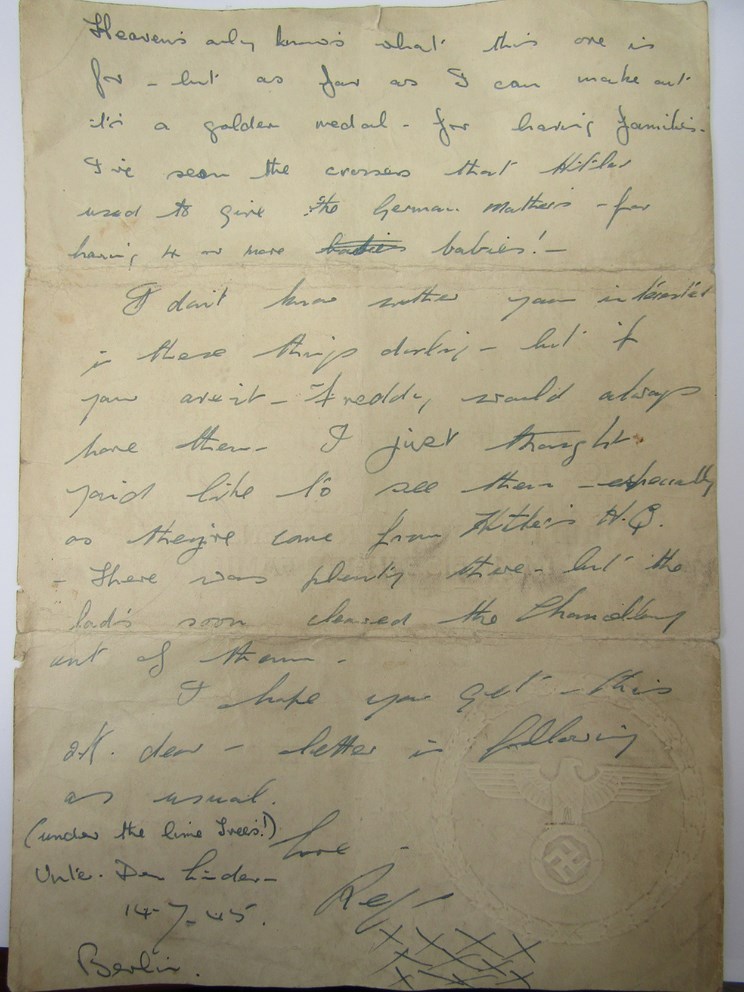 Heavens only know's what this one is
for - but as far as I can make out
it's a golden medal - for having families.
I've seen the crosses that Hitler
used to give the German Mothers - for
having 4 or more babies babies! -
I don't know wether your interested
in these things darling - but if
your aren't - Freddy would always
have them - I just thought
you'd like to see them - especially
as they're come from Hitler's H.Q.
- There was plenty there - but the
lads soon cleared the Chancellory
out of them -
I hope you get this
O.K. dear - letter is following
as usual.
(under the lime Trees!)
love -
Unter Den Linden -
Reg
14-7-45.
Berlin.
XXXX
XXXX
XXX